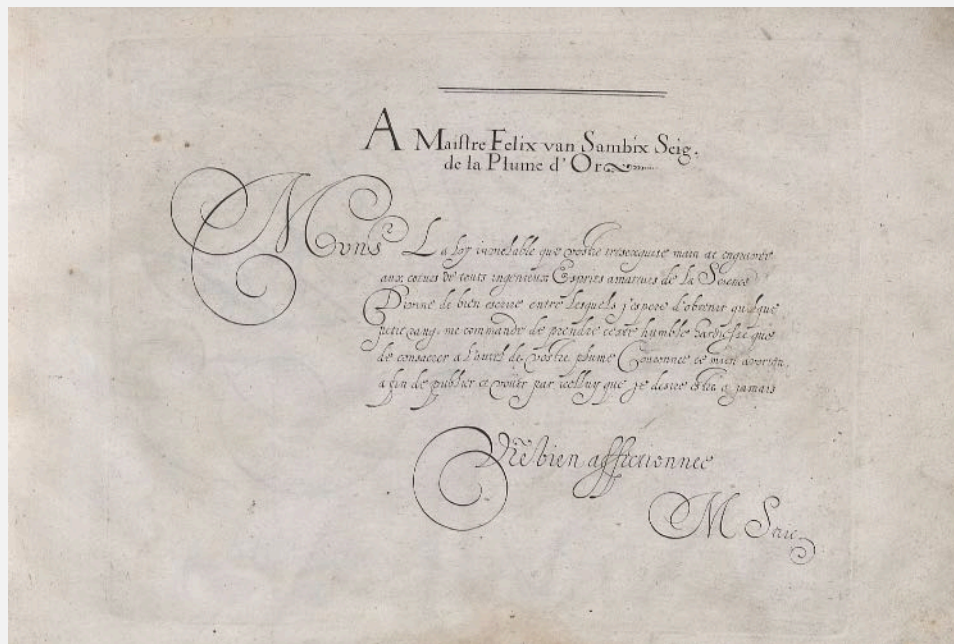 A Maistre Felix van Sambix Seig.
de la Plume d'Or
Mons.r La loy inviolable que vostre tresexquise main at engravée
aux cœurs de touts ingenieux Esprits amateurs de la Science
Divine de bien escrire entre lesquels j'espere d'obtenir quelque
petit rang, me commande de prendre ceste humble hardiesse que
de consacrer a l'autel de vostre plume Couronnee ce mien avorton,
a fin de publier ce vouer par icelluy que je desire estre a jamais
Vre bien affectionnee
M Stric